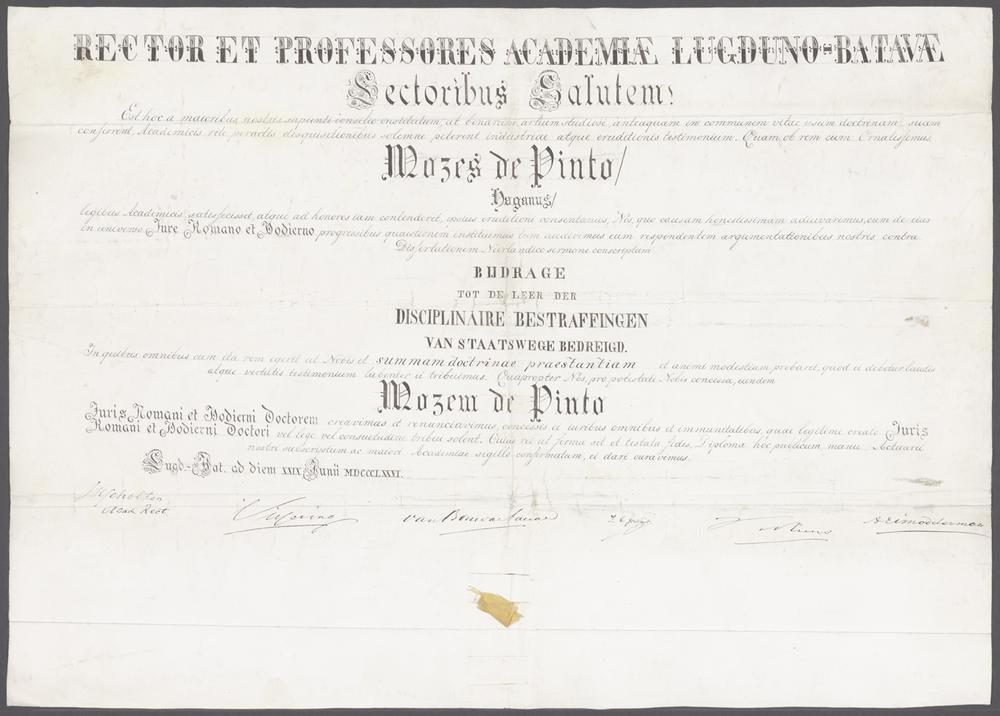 RECTOR ET PROFESSORES ACADEMIÆ LUGDUNO-BATAVÆ
Lectoribus Salutem!
Est hoc a maioribus nostris sapienti consilio institutum, ut bonarum artium studiosi, antequam in communem vitae usum doctrinam suam
conferant, Academicis rite peractis disquisitionibus solemne peterent industriae atque eruditionis testimonium. Quam ob rem cum Ornatissimus
Mozes de Pinto/
Haganus/
legibus Academicis satisfecisset, atque ad honores iam contenderet, ipsius eruditioni consentaneos, Nos, quo causam honestissimam adiuvaremus, cum de eius
in universo Jure Romano et Hodierno progressibus quaestionem instituimus tum audivimus eum respondentem argumentationibus nostris contra
Dissertationem Neerlandico sermone conscriptam
BIJDRAGE
TOT DE LEER DER
DISCIPLINAIRE BESTRAFFINGEN
VAN STAATSWEGE BEDREIGD.
In quibus omnibus cum ita rem egerit ut Nobis et summam doctrinae praestantiam et animi modestiam probaret, quod ei debetur laudis
atque virtutis testimonium lubenter ei tribuimus. Quapropter Nos, pro potestate Nobis concessa, eundem
Mozem de Pinto
Juris Romani et Hodierni Doctorem creavimus et renunciavimus, concessis ei iuribus omnibus et immunitatibus, quae legitime creato Juris
Romani et Hodierni Doctori vel lege vel consuetudine tribui solent. Cuius rei ut firma sit et testata fides, Diploma hoc publicum, manu Actuarii
nostri subscriptum ac maiori Academiae sigillo confirmatum, ei dari curavimus.
Lugd.-Bat. ad diem XXIX Junii MDCCCLXXVI.
Scholten
Acad. Rect.
van Boneval Faure
A E J Modderman